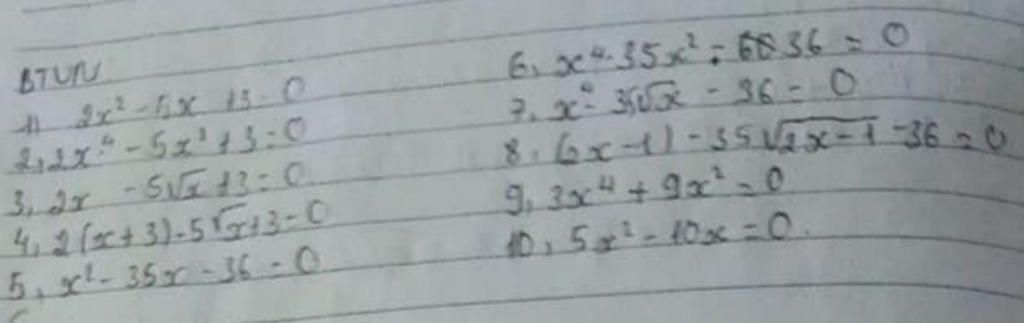 BTVN
1, 2x² - 5x + 3 = 0
2, 2x⁴ - 5x² + 3 = 0
3, 2x - 5√x + 3 = 0
4, 2(x+3) - 5√x+3 = 0
5, x² - 35x - 36 = 0
6, x⁴ - 35x² - 36 = 0
7, x - 35√x - 36 = 0
8, (2x-1) - 35√2x-1 - 36 = 0
9, 3x⁴ + 9x² = 0
10, 5x² - 10x = 0